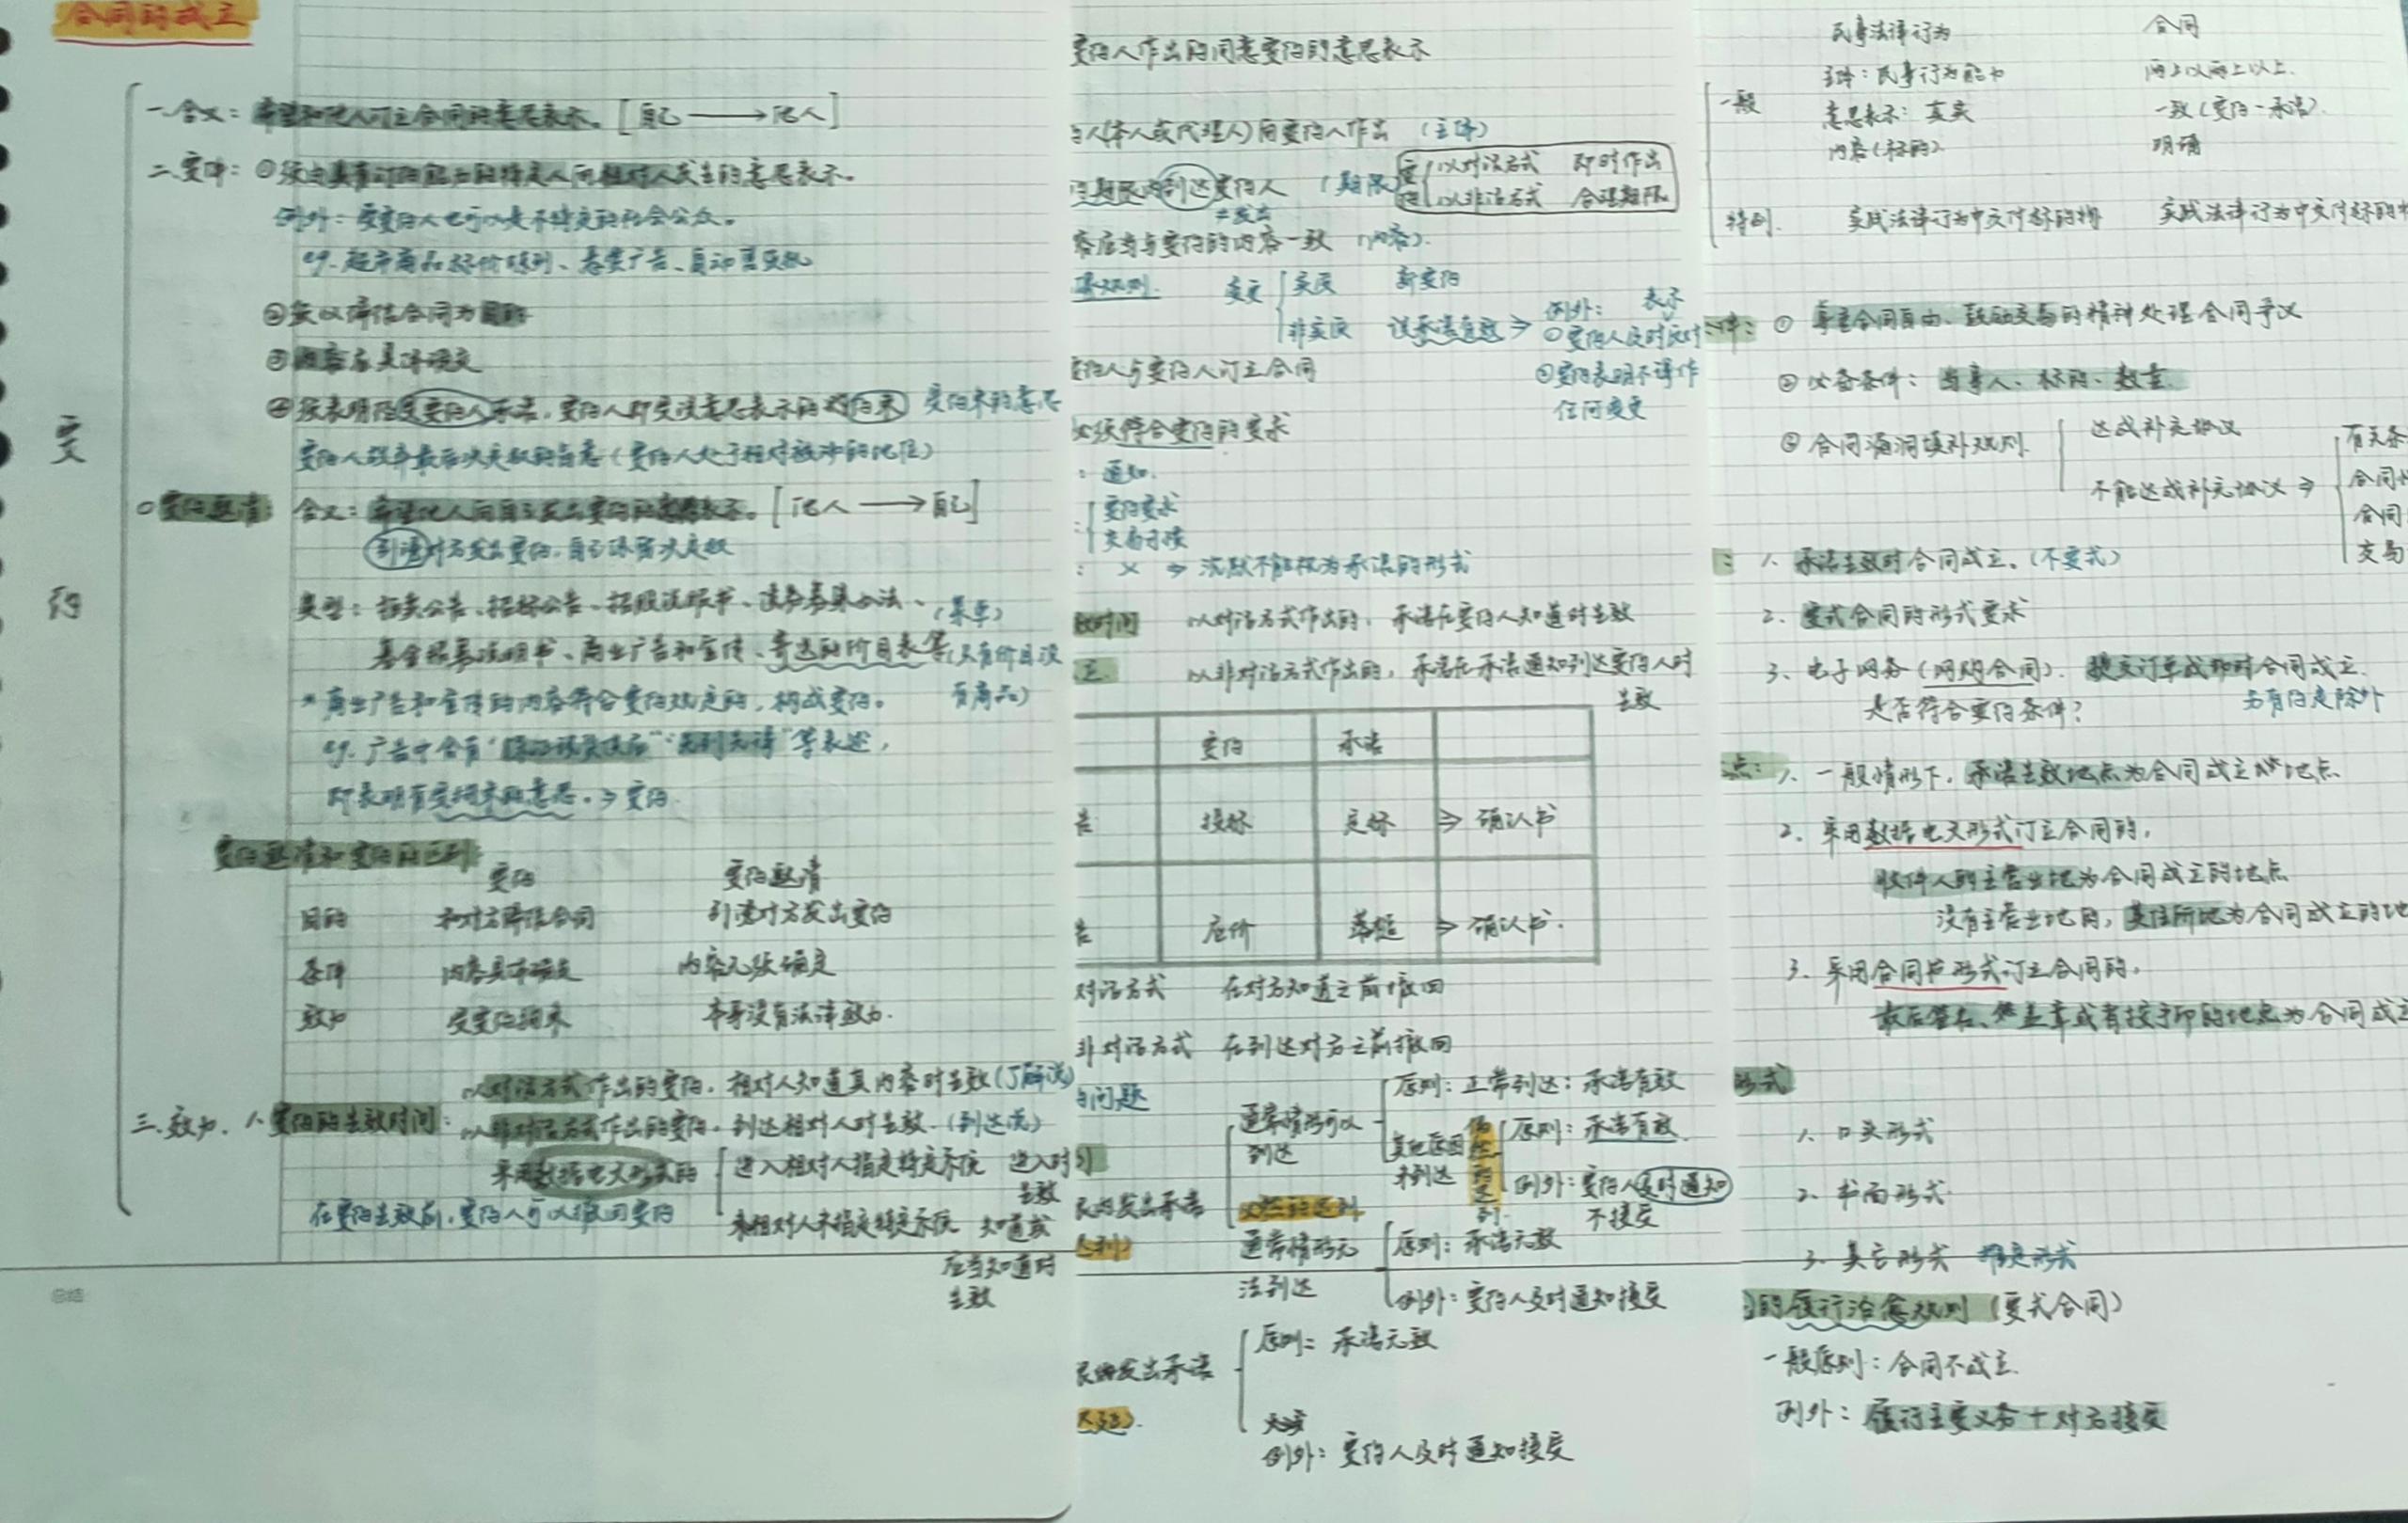 合同的成立
要约
一.含义：希望和他人订立合同的意思表示。[自己→他人]
二.要件：①须由具有订约能力的特定人向相对人发出的意思表示。
例外：受要约人也可以是不特定的社会公众。
eg.超市商品标价陈列、悬赏广告、自动售货机
②须以缔结合同为目的
③内容须具体确定
④须表明经受要约人承诺，要约人即受该意思表示的约束 受约束的意思
要约人放弃最后决定权的旨意（要约人处于相对被动的地位）
○要约邀请：含义：希望他人向自己发出要约的意思表示。[他人→自己]
引诱对方发出要约，自己保留决定权
类型：拍卖公告、招标公告、招股说明书、债券募集办法、(菜单)
基金招募说明书、商业广告和宣传、寄送的价目表等(只有价目没有商品)
*商业广告和宣传的内容符合要约规定的，构成要约。
eg.广告中含有“保证现货供应”“先到先得”等表述，
即表明有受拘束的意思。→要约
要约邀请和要约的区别
要约 要约邀请
目的 和对方缔结合同 引诱对方发出要约
条件 内容具体确定 内容无须确定
效力 受要约拘束 本身没有法律效力.
三.效力. 1.要约的生效时间：以对话方式作出的要约，相对人知道其内容时生效(了解说)
以非对话方式作出的要约，到达相对人时生效.(到达说)
采用数据电文形式的 进入相对人指定特定系统 进入时生效
未相对人未指定特定系统 知道或应当知道时生效
在要约生效前，要约人可以撤回要约
要约人作出的同意要约的意思表示
约人(本人或代理人)向要约人作出 (主体)
的期限内到达要约人 (期限)
≠发出
要约 以对话方式 即时作出
以非话方式 合理期限
容应当与要约的内容一致 (内容).
变更 实质 新要约
非实质 该承诺有效⇒例外：表示
①要约人及时反对
②要约表明不得作任何变更
约人与要约人订立合同
必须符合要约的要求
：通知.
要约要求
交易习惯
：× ⇒沉默不能视为承诺的形式
效时间 以对话方式作出的，承诺在要约人知道时生效
以非对话方式作出的，承诺在承诺通知到达要约人时生效
要约 承诺
告 投标 定标 ⇒确认书
告 应价 落槌 ⇒确认书.
对话方式 在对方知道之前撤回
非对话方式 在到达对方之前撤回
的问题
限内发出承诺
通常情形可以到达 原则：正常到达：承诺有效
其他原因未到达 原则：承诺有效
例外：要约人及时通知不接受
通常情形无法到达 原则：承诺无效
例外：要约人及时通知接受
限后发出承诺 原则：承诺无效
例外：要约人及时通知接受
民事法律行为 合同
一般 主体：民事行为能力 两上以两上以上.
意思表示：真实 一致(要约-承诺).
内容(标的) 明确
特别. 实践法律行为中交付标的物 实践法律行为中交付标的物
件：① 尊重合同自由、鼓励交易的精神处理合同争议
② 必备条件：当事人、标的、数量.
③ 合同漏洞填补规则. 达成补充协议
不能达成补充协议⇒ 有关条
合同
合同
交易
：1.承诺生效时合同成立。(不要式)
2.要式合同的形式要求
3.电子网务(网购合同). 提交订单成功时合同成立.
是否符合要约条件? 另有约定除外
点：1.一般情形下，承诺生效地点为合同成立地点.
2.采用数据电文形式订立合同的，
收件人的主营业地为合同成立的地点
没有主营业地的，其住所地为合同成立的地
3.采用合同书形式订立合同的，
最后签名、盖章或者按手印的地点为合同成立
形式
1.口头形式
2.书面形式
3.其它形式 推定形式
的履行治愈规则(要式合同)
一般原则：合同不成立.
例外：履行主要义务+对方接受